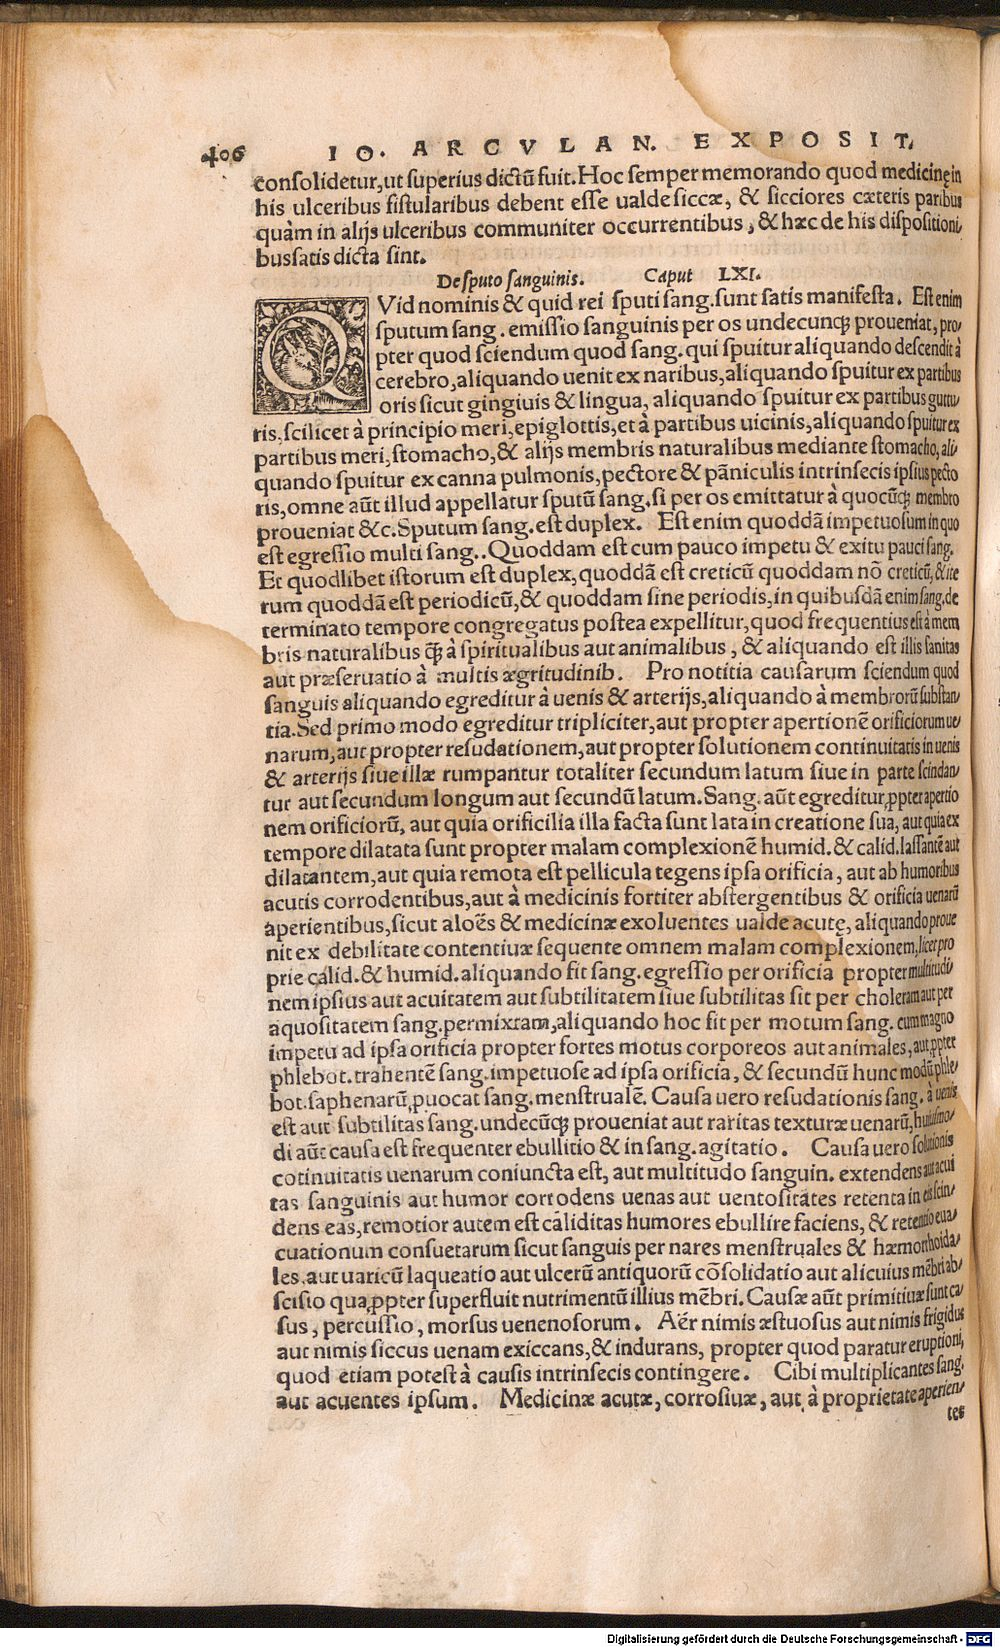 406 IO. ARCVLAN. EXPOSIT.
consolidetur, ut superius dictũ fuit. Hoc semper memorando quod medicinę in
his ulceribus fistularibus debent esse ualde siccæ, & sicciores cæteris paribus
quàm in alijs ulceribus communiter occurrentibus, & hæc de his dispositioni/
bus satis dicta sint.
De sputo sanguinis. Caput LXI.
QVid nominis & quid rei sputi sang. sunt satis manifesta. Est enim
sputum sang. emissio sanguinis per os undecunq; proueniat, pro/
pter quod sciendum quod sang. qui spuitur aliquando descendit à
cerebro, aliquando uenit ex naribus, aliquando spuitur ex partibus
oris sicut gingiuis & lingua, aliquando spuitur ex partibus guttu/
ris, scilicet à principio meri, epiglottis, et à partibus uicinis, aliquando spuitur ex
partibus meri, stomacho, & alijs membris naturalibus mediante stomacho, ali/
quando spuitur ex canna pulmonis, pectore & pãniculis intrinsecis ipsius pecto
ris, omne aũt illud appellatur sputũ sang. si per os emittatur à quocũq; membro
proueniat &c. Sputum sang. est duplex. Est enim quoddã impetuosum in quo
est egressio multi sang.. Quoddam est cum pauco impetu & exitu pauci sang.
Et quodlibet istorum est duplex, quoddã est creticũ quoddam nõ creticũ, & ite
rum quoddã est periodicũ, & quoddam sine periodis, in quibusdã enim sang. de
terminato tempore congregatus postea expellitur, quod frequentius est à mem
bris naturalibus q̃ à spiritualibus aut animalibus, & aliquando est illis sanitas
aut præseruatio à multis ægritudinib. Pro notitia causarum sciendum quod
sanguis aliquando egreditur à uenis & arterijs, aliquando à membrorũ substan/
tia. Sed primo modo egreditur tripliciter, aut propter apertionẽ orificiorum ue/
narum, aut propter resudationem, aut propter solutionem continuitatis in uenis
& arterijs siue illæ rumpantur totaliter secundum latum siue in parte scindan/
tur aut secundum longum aut secundũ latum. Sang. aũt egreditur ꝓpter apertio
nem orificiorũ, aut quia orificilia illa facta sunt lata in creatione sua, aut quia ex
tempore dilatata sunt propter malam complexionẽ humid. & calid. lassantẽ aut
dilatantem, aut quia remota est pellicula tegens ipsa orificia, aut ab humoribus
acutis corrodentibus, aut à medicinis fortiter abstergentibus & orificia uenarũ
aperientibus, sicut aloës & medicinæ exoluentes ualde acutę, aliquando proue
nit ex debilitate contentiuæ sequente omnem malam complexionem, licet pro
prie calid. & humid. aliquando fit sang. egressio per orificia propter multitudi/
nem ipsius aut acuitatem aut subtilitatem siue subtilitas sit per choleram aut per
aquositatem sang. permixtam, aliquando hoc fit per motum sang. cum magno
impetu ad ipsa orificia propter fortes motus corporeos aut animales, aut ꝓpter
phlebot. trahentẽ sang. impetuose ad ipsa orificia, & secundũ hunc modũ phle/
bot. saphenarũ, ꝓuocat sang. menstrualẽ. Causa uero resudationis sang. à uenis
est aut subtilitas sang. undecũq; proueniat aut raritas texturæ uenarũ, huiusmo/
di aũt causa est frequenter ebullitio & in sang. agitatio. Causa uero solutionis
cotinuitatis uenarum coniuncta est, aut multitudo sanguin. extendens aut acui
tas sanguinis aut humor corrodens uenas aut uentositates retenta in eis scin/
dens eas, remotior autem est caliditas humores ebullire faciens, & retentio eua/
cuationum consuetarum sicut sanguis per nares menstruales & hæmorrhoida/
les, aut uaricũ laqueatio aut ulcerũ antiquorũ cõsolidatio aut alicuius mẽbri ab/
scisio qua ꝓpter superfluit nutrimentũ illius mẽbri. Causæ aũt primitiuæ sunt ca/
sus, percussio, morsus uenenosorum. Aër nimis æstuosus aut nimis frigidus
aut nimis siccus uenam exiccans, & indurans, propter quod paratur eruptioni,
quod etiam potest à causis intrinsecis contingere. Cibi multiplicantes sang.
aut acuentes ipsum. Medicinæ acutæ, corrosiuæ, aut à proprietate aperien/
tes
Digitalisierung gefördert durch die Deutsche Forschungsgemeinschaft - DFG